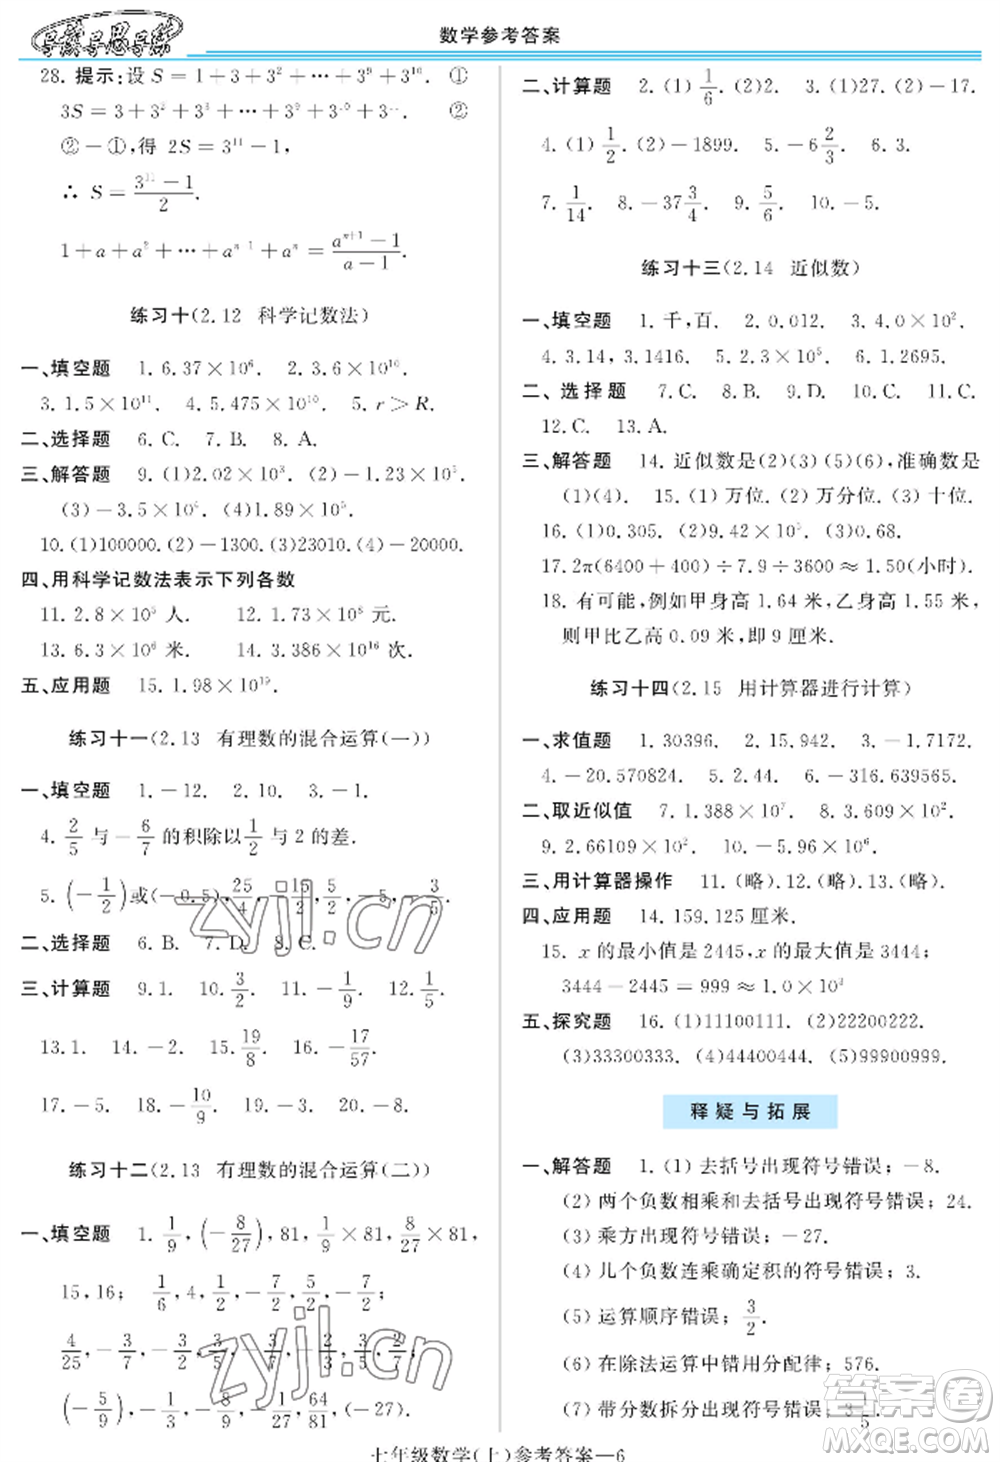 导读导思导练
数学参考答案
28. 提示:设 S=1+3+3²+…+3⁹+3¹⁰. ①
3S=3+3²+3³+…+3⁹+3¹⁰+3¹¹. ②
②-①,得 2S=3¹¹-1,
∴ S=(3¹¹-1)/2.
1+a+a²+…+aⁿ⁻¹+aⁿ=(aⁿ⁺¹-1)/(a-1).
练习十(2.12 科学记数法)
一、填空题 1. 6.37×10⁶. 2. 3.6×10¹⁰.
3. 1.5×10¹¹. 4. 5.475×10¹⁰. 5. r>R.
二、选择题 6. C. 7. B. 8. A.
三、解答题 9. (1)2.02×10³. (2)-1.23×10⁵.
(3)-3.5×10⁶. (4)1.89×10⁵.
10. (1)100000. (2)-1300. (3)23010. (4)-20000.
四、用科学记数法表示下列各数
11. 2.8×10⁵ 人. 12. 1.73×10⁸ 元.
13. 6.3×10⁶ 米. 14. 3.386×10¹⁶ 次.
五、应用题 15. 1.98×10¹⁹.
练习十一(2.13 有理数的混合运算(一))
一、填空题 1. -12. 2. 0. 3. -1.
4. 2/5 与 -6/7 的积除以 1/2 与 2 的差.
5. (-1/2)或(-0.5), 25/4, 15/2, 5/2, -4/5.
二、选择题 6. B. 7. D. 8. C.
三、计算题 9. 1. 10. 3/2. 11. -1/9. 12. 1/5.
13. 1. 14. -2. 15. 19/8. 16. -17/57.
17. -5. 18. -10/9. 19. 20. 20. -8.
练习十二(2.13 有理数的混合运算(二))
一、填空题 1. 1/9, (-8/27), 81, 1/9×81, 8/27×81,
15, 16; 1/6, 4, 1/2, -7/2, 5/2, -7/2;
4/25, -3/7, -3/2, -3/5, -3/7, -3/7;
(-5/9), -1/3, -1/9, 1/27, 64/81, (-27).
二、计算题 2. (1) 1/6. (2)2. 3. (1)27. (2)-17.
4. (1) 1/2. (2)-1899. 5. -6 2/3. 6. 3.
7. 1/14. 8. -37 3/4. 9. 5/6. 10. -5.
练习十三(2.14 近似数)
一、填空题 1. 千,百. 2. 0.012. 3. 4.0×10².
4. 3.14, 3.1416. 5. 2.3×10⁵. 6. 1.2695.
二、选择题 7. C. 8. D. 9. D. 10. C. 11. C.
12. C. 13. A.
三、解答题 14. 近似数是(2)(3)(5)(6),准确数是
(1)(4). 15. (1)万位. (2)万分位. (3)十位.
16. (1)0.305. (2)9.42×10⁵. (3)0.68.
17. 2π(6400+400)÷7.9÷3600≈1.50(小时)
18. 有可能,例如甲身高 1.64 米,乙身高 1.55 米,
则甲比乙高 0.09 米,即 9 厘米.
练习十四(2.15 用计算器进行计算)
一、求值题 1. 30396. 2. 15.942. 3. -1.7172.
4. -20.570824. 5. 2.44. 6. -316.639565.
二、取近似值 7. 1.388×10⁷. 8. 3.609×10².
9. 2.66109×10². 10. -5.96×10³.
三、用计算器操作 11. (略). 12. (略). 13. (略).
四、应用题 14. 159.125 厘米.
15. x 的最小值是 2445, x 的最大值是 3444;
3444-2445=999≈1.0×10³
五、探究题 16. (1)11100111. (2)22200222.
(3)33300333. (4)44400444. (5)99900999.
释疑与拓展
一、解答题 1. (1) 去括号出现符号错误; -8.
(2) 两个负数相乘和去括号出现符号错误; 24.
(3) 乘方出现符号错误; -27.
(4) 几个负数连乘确定积的符号错误; 3.
(5) 运算顺序错误; 3/2.
(6) 在除法运算中错用分配律; 576.
(7) 带分数拆分出现符号错误; -3 1/5
七年级数学(上)参考答案—6
zyjl.cn
zyjl.cn
答案圈
MXQE.COM